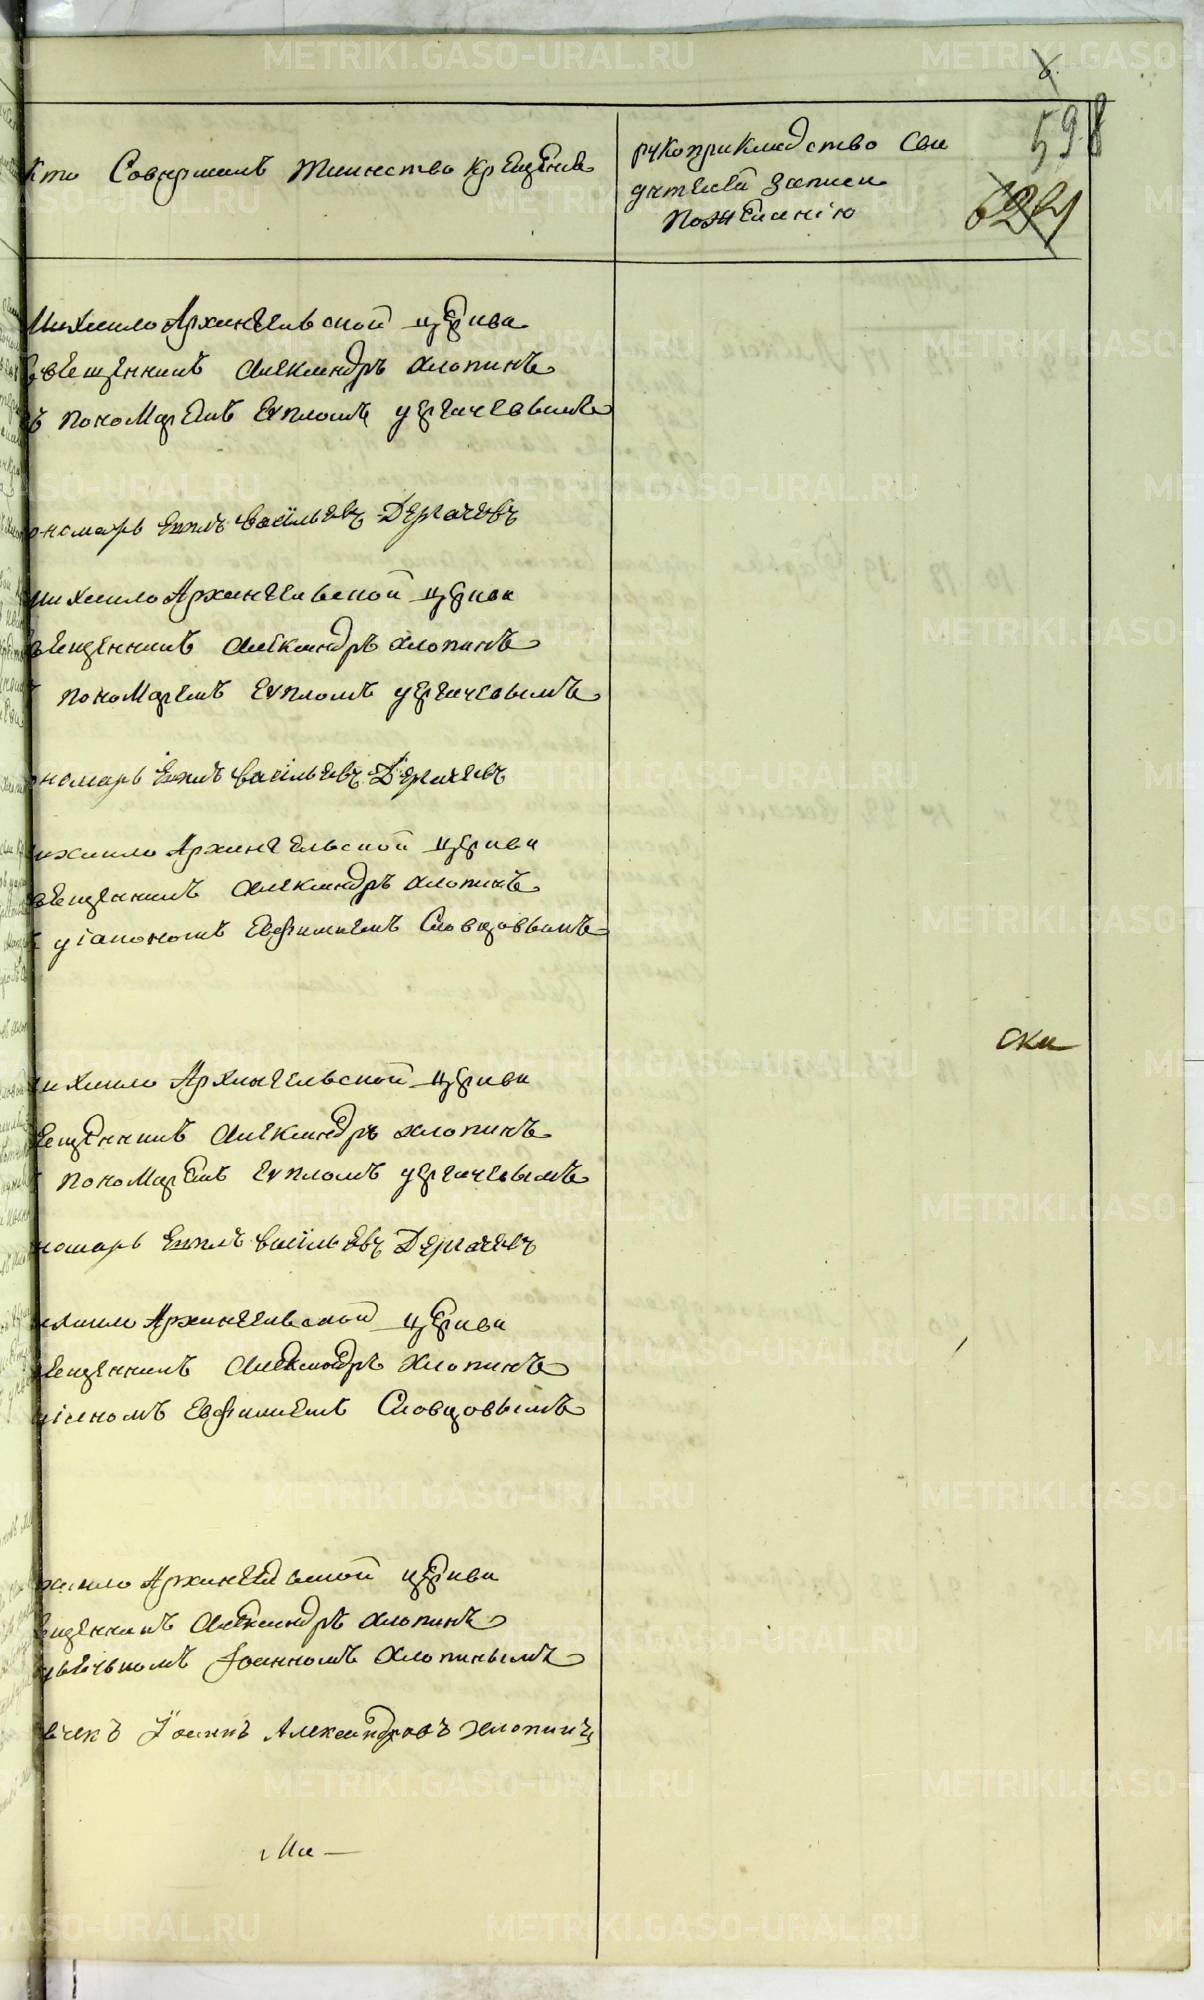 6
598
624
Кто Совершалъ Таинство крещения
рукоприкладство сви
дителей записи
по желанію
Михаило Архангельской церкви
Священникъ Александръ Хлопинъ
съ пономаремъ Еѵпломъ дергачевымъ
пономарь Еѵплъ васильевъ Дергачевъ
Михаило Архангельской церкви
священникъ Александръ Хлопинъ
съ пономаремъ Еѵпломъ дергачевымъ
пономарь Еѵплъ васильевъ Дергачевъ
Михаило Архангельской церкви
священникъ Александръ Хлопинъ
съ діакономъ Евфимиемъ Словцовымъ
ска
Михаило Архангельской церкви
священникъ Александръ Хлопинъ
съ пономаремъ Еѵпломъ дергачевымъ
пономарь Еѵплъ васильевъ Дергачевъ
Михаило Архангельской церкви
священникъ Александръ Хлопинъ
діакономъ Евфимиемъ Словцовымъ
Михаило Архангельской церкви
священникъ Александръ Хлопинъ
дьячькомъ Іоанномъ Хлопинымъ
дьячекъ Іоаннъ Александровъ Хлопинъ
METRIKI.GASO-URAL.RU